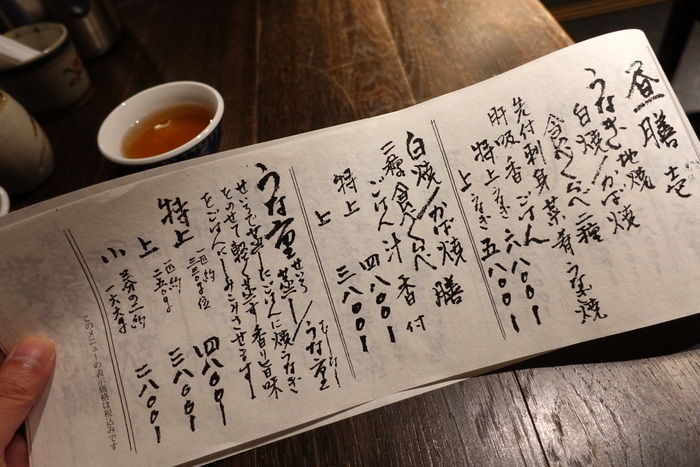 昼膳 壱
うなぎ 地焼
白焼/かば焼
食べくらべ二種
先付 刺身 菜肴 うな焼
肝吸 香 ごはん
特上うなぎ 六八〇〇
上うなぎ 五八〇〇
白焼/かば焼 膳
二種食べくらべ
ごはん 汁 香 付
特上 四八〇〇
上 三八〇〇
うな重
せいろ蒸し/うな重
せいろで蒸したごはんに焼うなぎ
をのせて軽く蒸す 香り旨味
をごはんにしみこませます
特上 一匹 四八〇〇
上 一匹 三八〇〇
小 三分の二 二八〇〇
このメニューの表示価格は税込みです